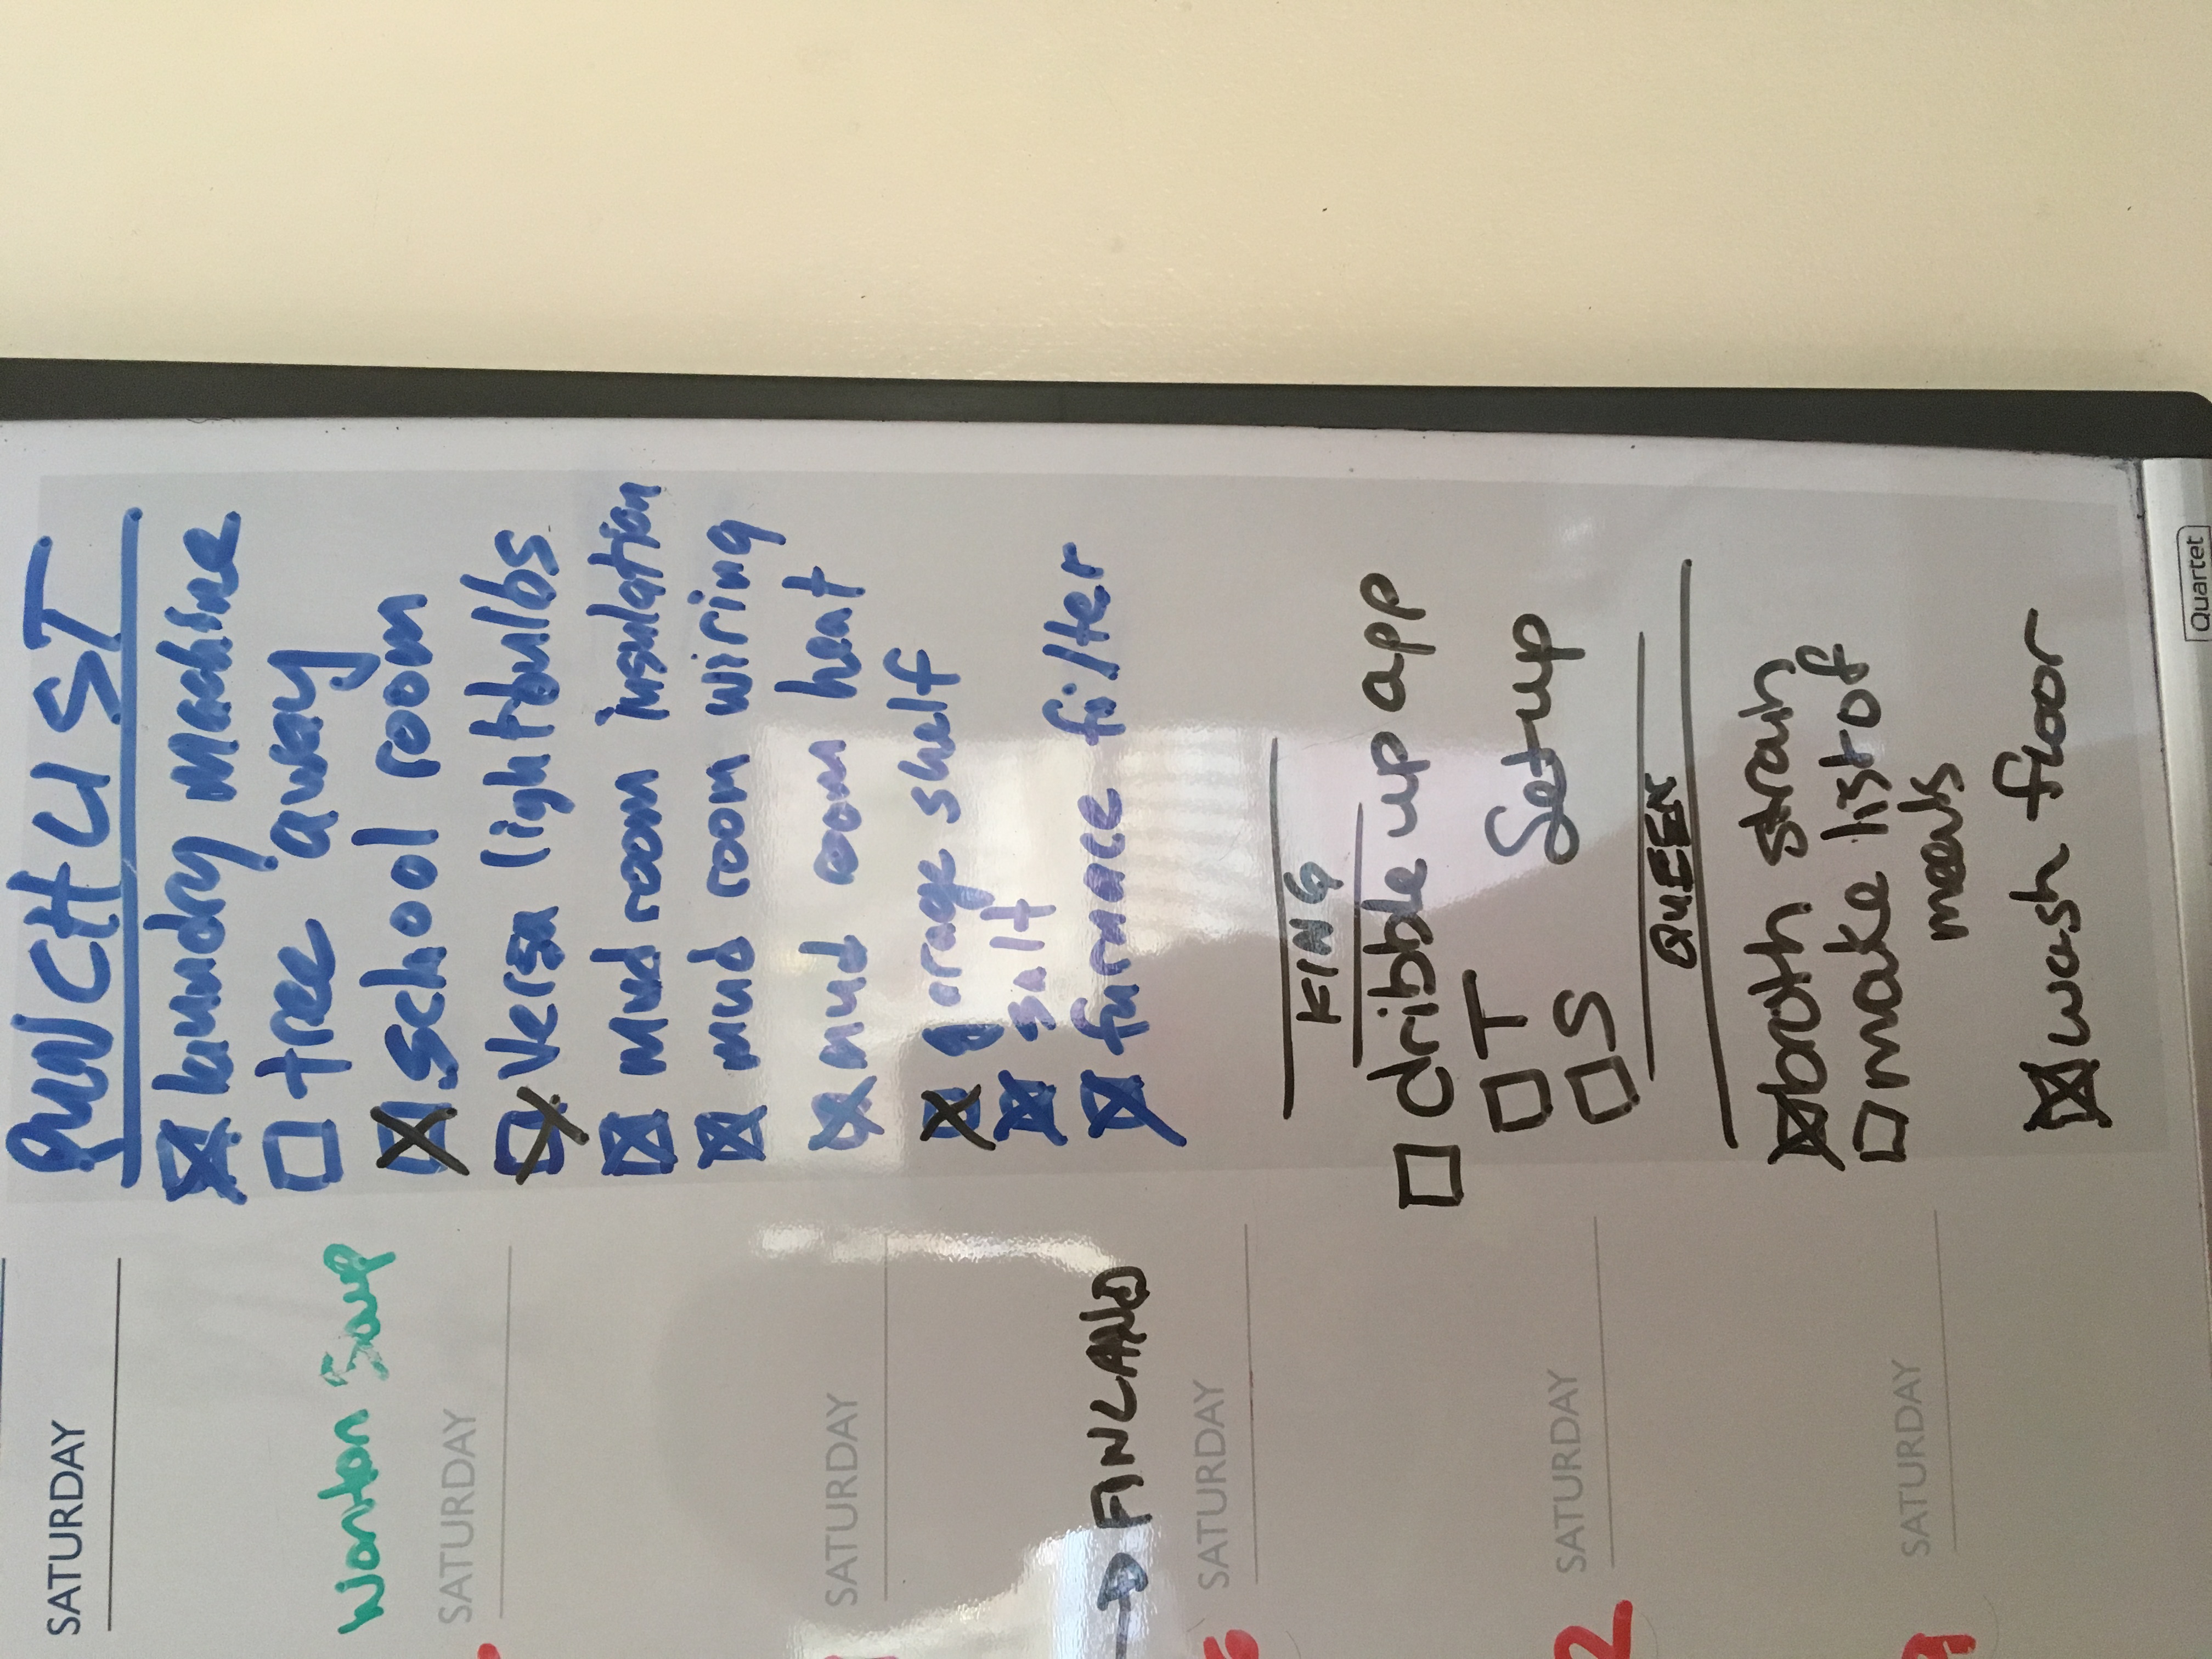 PUNCHLIST
laundry machine
tree away
school room
Versa lightbulbs
mud room insulation
mud room wiring
mud room heat
garage shelf
salt
furnace filter
KING
dribble up app
T Setup
S
QUEEN
broth strain
make list of
meals
wash floor
SATURDAY
Wonton Soup
SATURDAY
SATURDAY
FINLAND
SATURDAY
SATURDAY
SATURDAY
Quartet